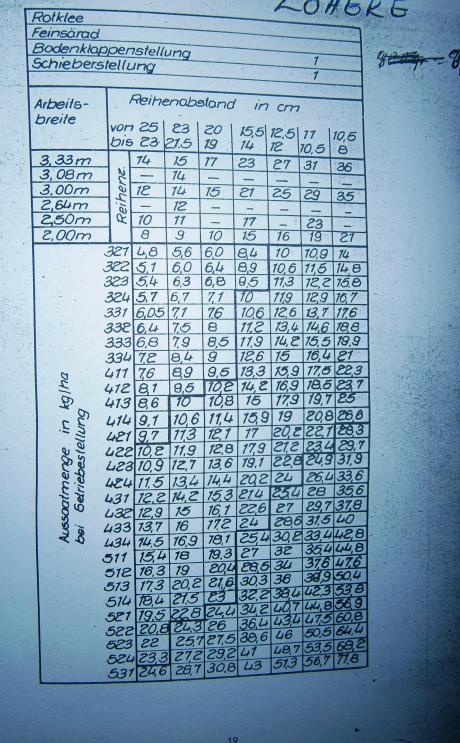 LOHERE
Rotklee
Feinsärad
Bodenklappenstellung 1
Schieberstellung 1
Arbeits-breite
Reihenabstand in cm
von 25 23 20 15,5 12,5 11 10,5
bis 23 21,5 19 14 12 10,5 8
Reihenz.
3,33m 14 15 17 23 27 31 36
3,08m — 14 — — — — —
3,00m 12 14 15 21 25 29 35
2,64m — 12 — — — — —
2,50m 10 11 — 17 — 23 —
2,00m 8 9 10 15 16 19 27
Aussaatmenge in kg/ha
bei Getriebestellung
321 4,8 5,6 6,0 8,4 10 10,9 14
322 5,1 6,0 6,4 8,9 10,6 11,5 14,8
323 5,4 6,3 6,8 9,5 11,3 12,2 15,8
324 5,7 6,7 7,1 10 11,9 12,9 16,7
331 6,05 7,1 7,6 10,6 12,6 13,7 17,6
332 6,4 7,5 8 11,2 13,4 14,6 18,8
333 6,8 7,9 8,5 11,9 14,2 15,5 19,9
334 7,2 8,4 9 12,6 15 16,4 21
411 7,6 8,9 9,5 13,3 15,9 17,5 22,3
412 8,1 9,5 10,2 14,2 16,9 18,5 23,7
413 8,6 10 10,8 15 17,9 19,7 25
414 9,1 10,6 11,4 15,9 19 20,8 26,6
421 9,7 11,3 12,1 17 20,2 22,1 28,3
422 10,2 11,9 12,8 17,9 21,2 23,4 29,7
423 10,9 12,7 13,6 19,1 22,8 24,9 31,9
424 11,5 13,4 14,4 20,2 24 26,4 33,6
431 12,2 14,2 15,3 21,4 25,4 28 35,6
432 12,9 15 16,1 22,6 27 29,7 37,8
433 13,7 16 17,2 24 28,6 31,5 40
434 14,5 16,9 18,1 25,4 30,2 33,4 42,8
511 15,4 18 19,3 27 32 35,4 44,8
512 16,3 19 20,4 28,5 34 37,6 47,6
513 17,3 20,2 21,6 30,3 36 39,9 50,4
514 18,4 21,5 23 32,2 38,4 42,3 53,8
521 19,5 22,8 24,4 34,2 40,7 44,8 56,9
522 20,8 24,3 26 36,4 43,4 47,5 60,8
523 22 25,7 27,5 38,6 46 50,5 64,4
524 23,3 27,2 29,2 41 48,7 53,5 68,2
531 24,6 28,7 30,8 43 51,3 56,7 71,8
19